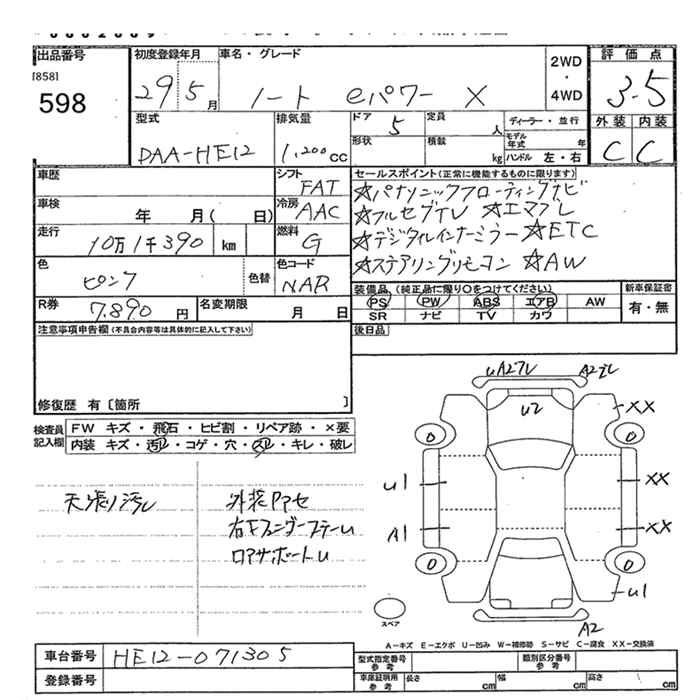 出品番号 初度登録年月 車名・グレード 2WD 評価点
[858]
598 29 5月 ノート eパワー X ・ 3.5
4WD
型式 排気量 ドア 5 定員 人 ディーラー・並行 外装 内装
DAA-HE12 1,200cc 形状 積載 kg モデル年式 年 C C
ハンドル 左・右
車歴 シフト FAT セールスポイント(正常に機能するものに限ります)
車検 年 月( 日) 冷房 AAC ☆パナソニックフローティングナビ
☆フルセグTV ☆エマブレ
走行 10万1千390 km 燃料 G ☆デジタルインナーミラー ☆ETC
色 ピンク 色替 色コード NAR ☆ステアリングリモコン ☆AW
装備品(純正品に限り○をつけてください) 新車保証書
R券 7,890円 名変期限 月 日 PS PW ABS エアB AW 有・無
SR ナビ TV カワ
注意事項申告欄(不具合内容等は具体的に記入して下さい) 後日品
修復歴 有〔箇所 〕
検査員記入欄 FW キズ・飛石・ヒビ割・リペア跡・×要
内装 キズ・汚れ・コゲ・穴・スレ・キレ・破レ
uA2ワレ A2ズレ
u2 XX
0 0
天張り汚レ 外装PアセU1 XX
右Fフェンダーステーu
A1 XX
ロアサポートu
0 0
u1
スペア
A2
A-キズ E-エクボ U-凹み W-補修跡 S-サビ C-腐食 XX-交換済
車台番号 HE12-071305 型式指定番号参考 類別区分番号参考
登録番号 車庫証明用参考 長さ cm 幅 cm 高さ cm